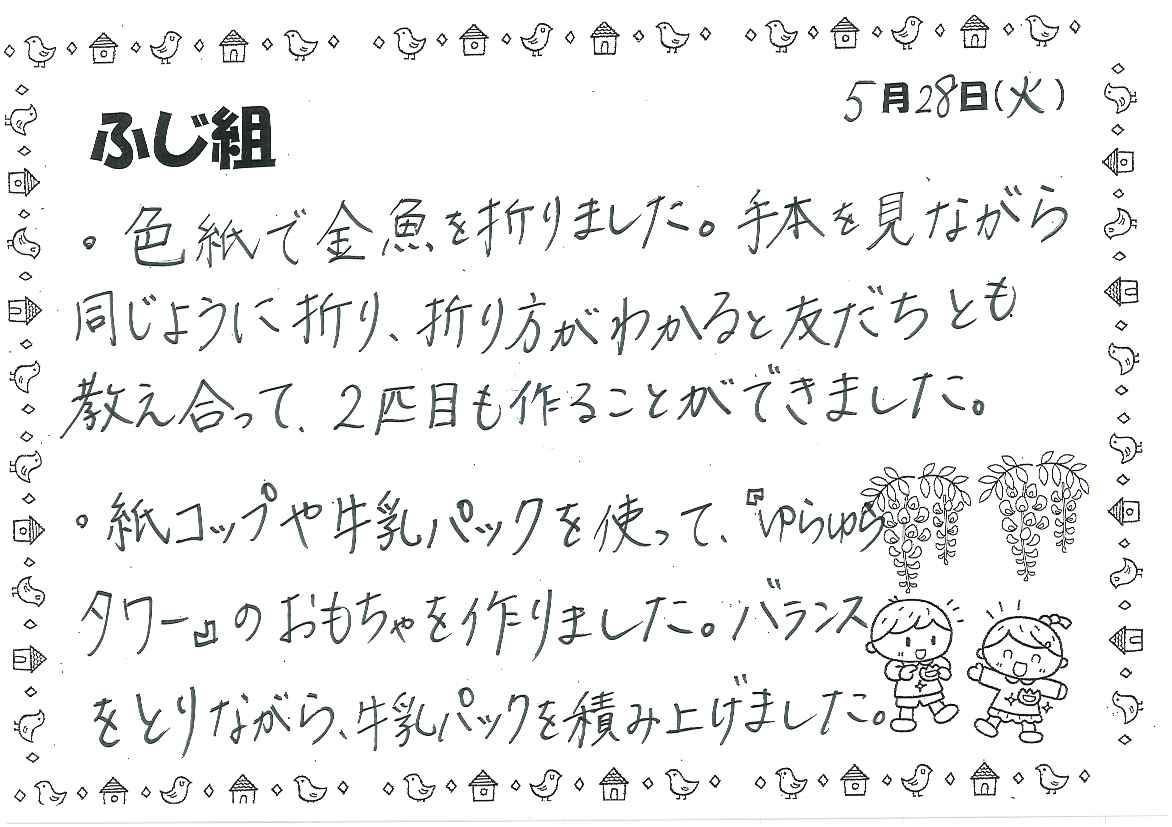 5月28日(火)
ふじ組
・色紙で金魚を折りました。手本を見ながら
同じように折り、折り方がわかると友だちとも
教え合って、2匹目も作ることができました。
・紙コップや牛乳パックを使って、『ゆらゆら
タワー』のおもちゃを作りました。バランス
をとりながら、牛乳パックを積み上げました。